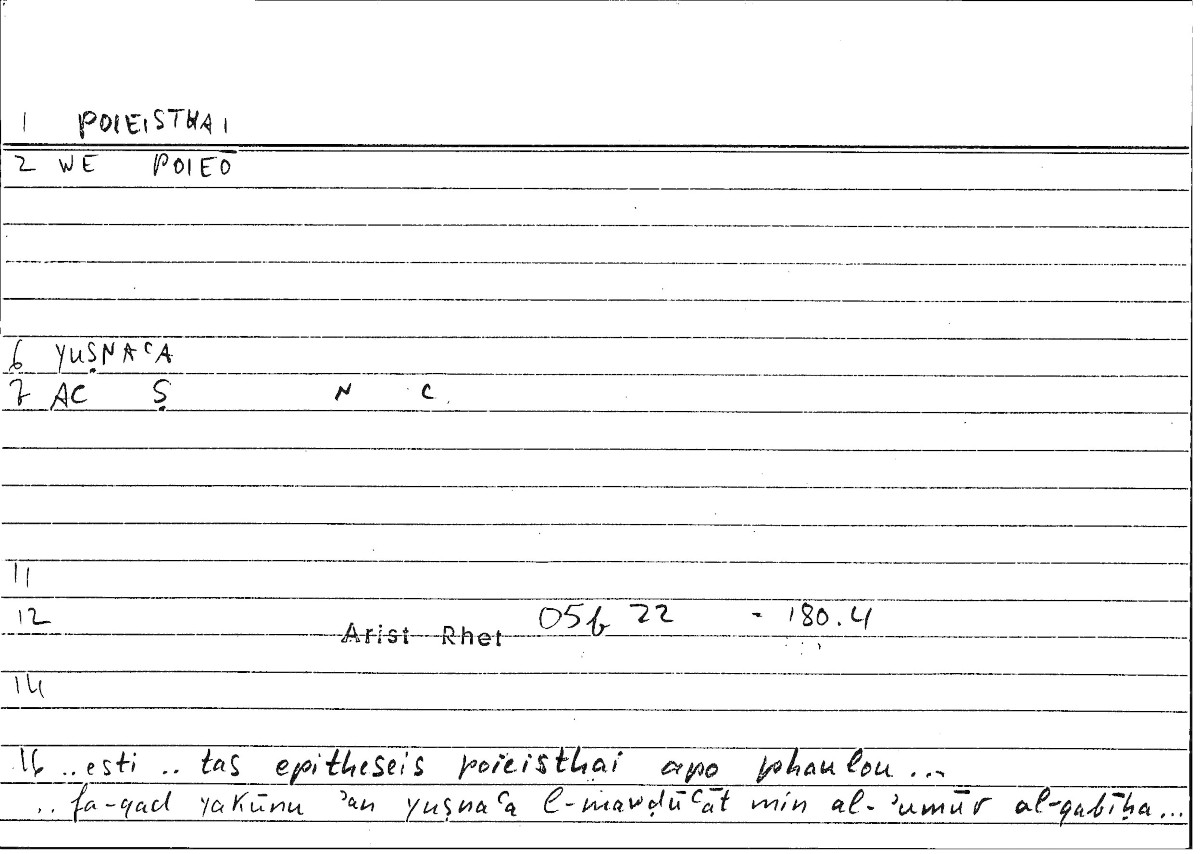 1 POIEISTHAI
2 WE POIEŌ
6 YUṢNAᶜA
7 AC Ṣ N C
11
12 Arist Rhet 05b 22 - 180.4
14
16 ..esti .. tas epitheseis poieisthai apo phaulou ...
.. fa-qad yakūnu ʾan yuṣnaᶜa l-mawḍūᶜāt min al-ʾumūr al-qabīḥa...